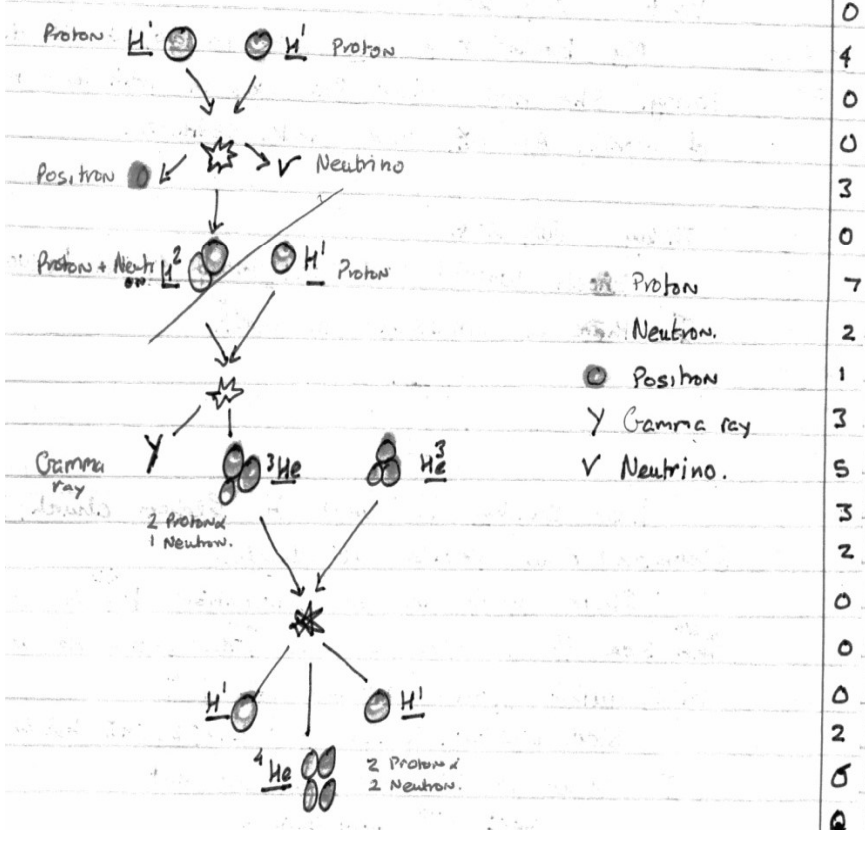 Proton H¹ H¹ Proton
Positron ν Neutrino
Proton + Neutron H² H¹ Proton
Gamma ray γ ³He He³
2 Proton &
1 Neutron.
H¹ H¹
⁴He 2 Proton &
2 Neutron.
Proton
Neutron.
Positron
γ Gamma ray
ν Neutrino.
0
4
0
0
3
0
7
2
1
3
5
3
2
0
0
0
2
6
0